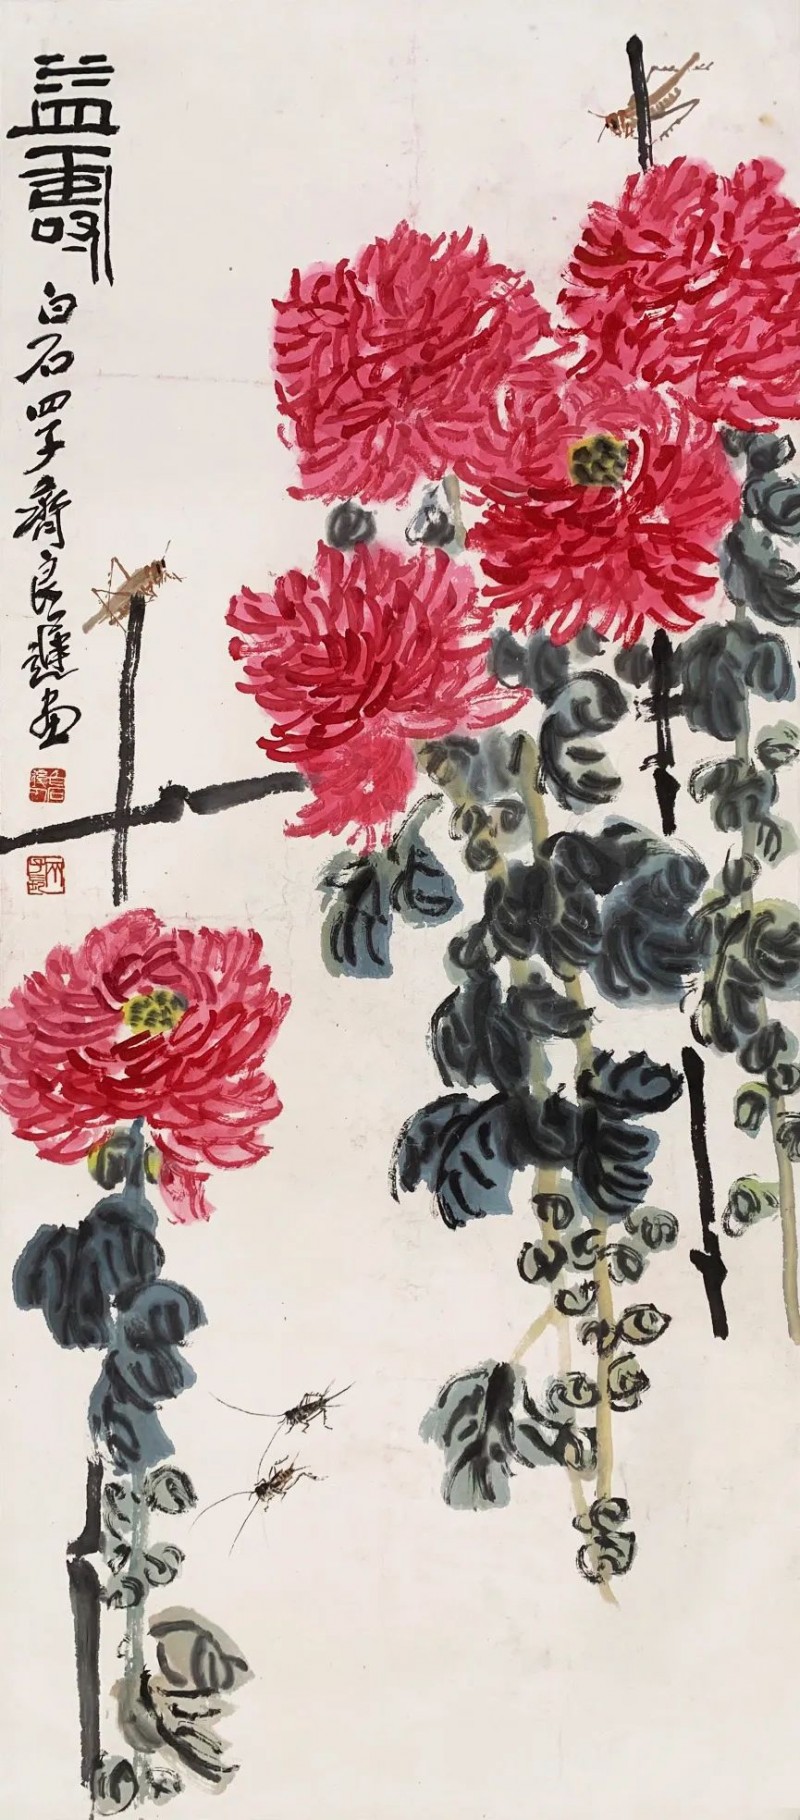 益壽
白石四子齊良遲畫